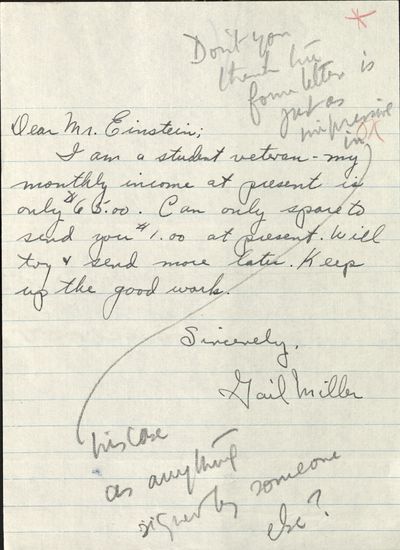 Don't you
think the
form letter is
just as
impressive
in
Dear Mr. Einstein;
I am a student veteran - my
monthly income at present is
only $65.00. Can only spare to
send you $1.00 at present. Will
try & send more later. Keep
up the good work.
Sincerely,
Gail Miller
his case
as anything
signed by someone
else?